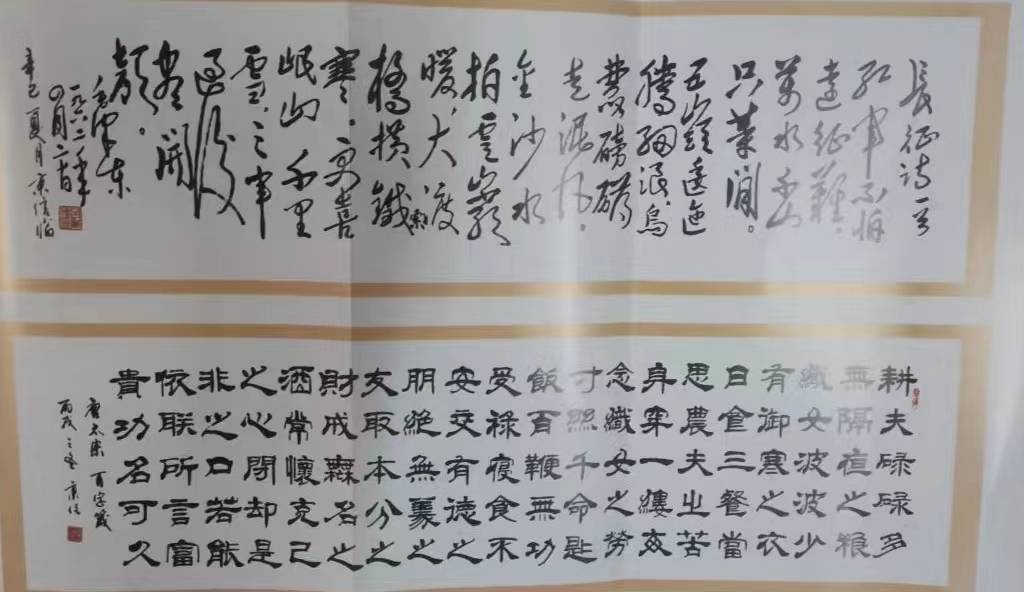 長征诗一首
红軍不怕
遠征難，
萬水千山
只等閒。
五嶺逶迤
騰細浪，烏
蒙磅礴
走泥丸。
金沙水
拍雲崖
暖，大渡
橋横鐵索
寒。更喜
岷山千里
雪，三軍
過後
盡開
顏。
毛澤東
一九六二年
四月二十日
辛巳夏月
耕夫碌碌多
無隔宿之粮
織女波波少
有御寒之衣
日食三餐當
思農夫之苦
身穿一縷每
念織女之勞
寸丝千命匙
飯百鞭無功
受禄寝食不
安交有德之
朋絕無義之
友取本分之
財戒無名之
酒常懷克己
之心閉却是
非之口若能
依联所言富
貴功名可久
唐太宗百字箴
丙戌之冬